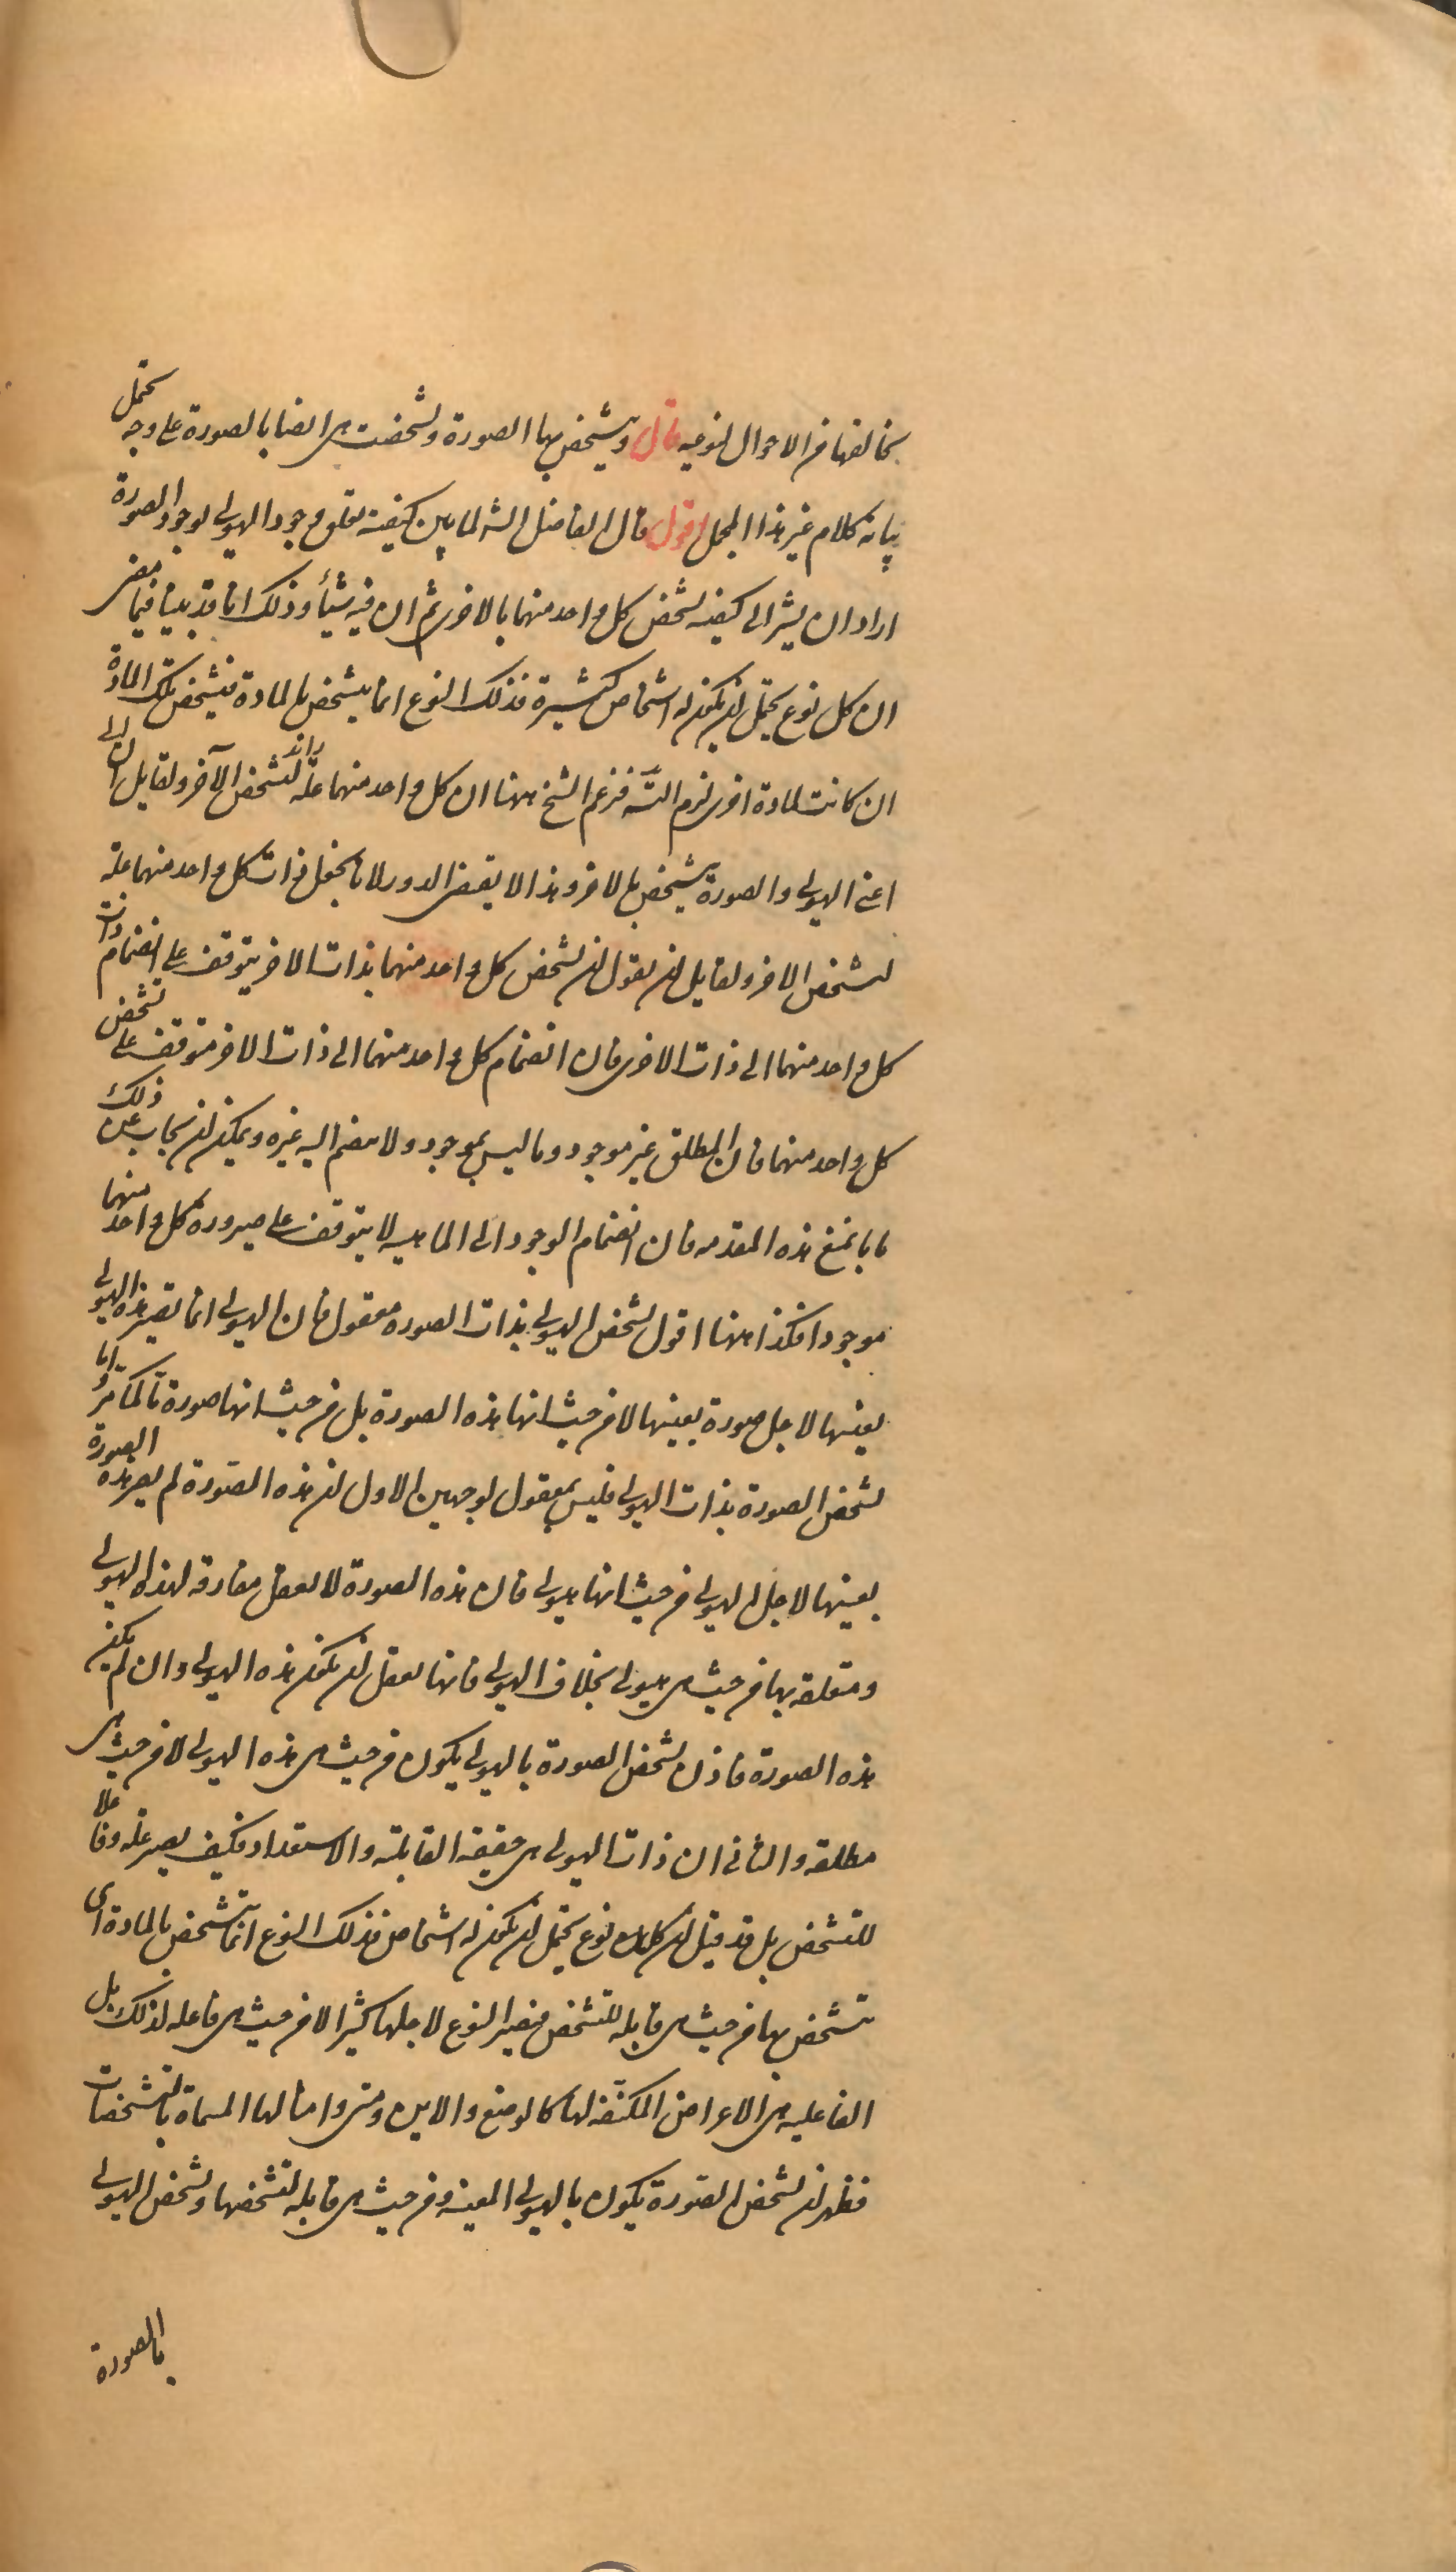 يخالفها في الاحوال النوعيه قال ويتشخص بها الصورة وتشخصت هى ايضا بالصورة على وجه يحتمل
بيانه كلام غير هذا المجمل اقول قال الفاضل الشه لما بين كيفية تعلق وجود الهيولى بوجود الصورة
اراد ان يشير الى كيفية تشخص كل واحد منهما بالاخرى ثم ان فيه شيئا وذلك انا قد بينا فيما مضى
ان كل نوع يحتمل ان يكون له اشخاص كثيرة فذلك النوع انما يتشخص بالمادة فيتشخص تلك المادة
ان كانت لمادة اخرى لزم التسـ فزعم الشيخ ههنا ان كل واحد منهما علة لتشخص الآخر ولقايل ان
اعنى الهيولى والصورة يتشخص بالاخر وهذا لا يقتضى الدور لانا نجعل ذات كل واحد منهما علة
لتشخص الاخر ولقايل ان يقول ان تشخص كل واحد منهما بذات الاخر يتوقف على انضمام ذات
كل واحد منهما الى ذات الاخرى فان انضمام كل واحد منهما الى ذات الاخر متوقف على تشخص
كل واحد منهما فان المطلق غير موجود وما ليس بموجود ولا ينضم اليه غيره ويمكن ان يجاب عن ذلك
بانا نمنع هذه المقدمه فان انضمام الوجود الى الماهيه لا يتوقف على صيرورة كل واحد منهما
موجودا فكذا ههنا اقول تشخص الهيولى بذات الصورة معقول فان الهيولى انما تصير هذه الهيولى
بعينها لاجل صورة بعينها لا من حيث انها هذه الصورة بل من حيث انها صورة ما كما مر واما
تشخص الصورة بذات الهيولى فليس بمعقول لوجهين الاول ان هذه الصورة لم يصر هذه الصورة
بعينها لاجل الهيولى من حيث انها هيولى فان هذه الصورة لا تعقل مفارقه لهذه الهيولى
ومتعلقه بها من حيث هى هيولى بخلاف الهيولى فانها تعقل ان يكون هذه الهيولى وان لم يكن
هذه الصورة فاذن تشخص الصورة بالهيولى يكون من حيث هى هذه الهيولى لا من حيث هى
مطلقه والثانى ان ذات الهيولى هى حقيقة القابلية والاستعداد فكيف يصير علة وفاعلا
للتشخص بل قد قيل ان كل نوع يحتمل ان يكون له اشخاص فذلك النوع انما يتشخص بالمادة اى
تتشخص بها من حيث هى قابله للتشخص فيصير النوع لاجلها كثيرا لا من حيث هى فاعله لذلك بل
الفاعليه هى الاعراض المكتنفه لها كالوضع والاين ومتى وامثالها المسماة بالمشخصات
فظهر ان تشخص الصورة يكون بالهيولى المعينه ومن حيث هى قابله لتشخصها وتشخص الهيولى
بالصورة